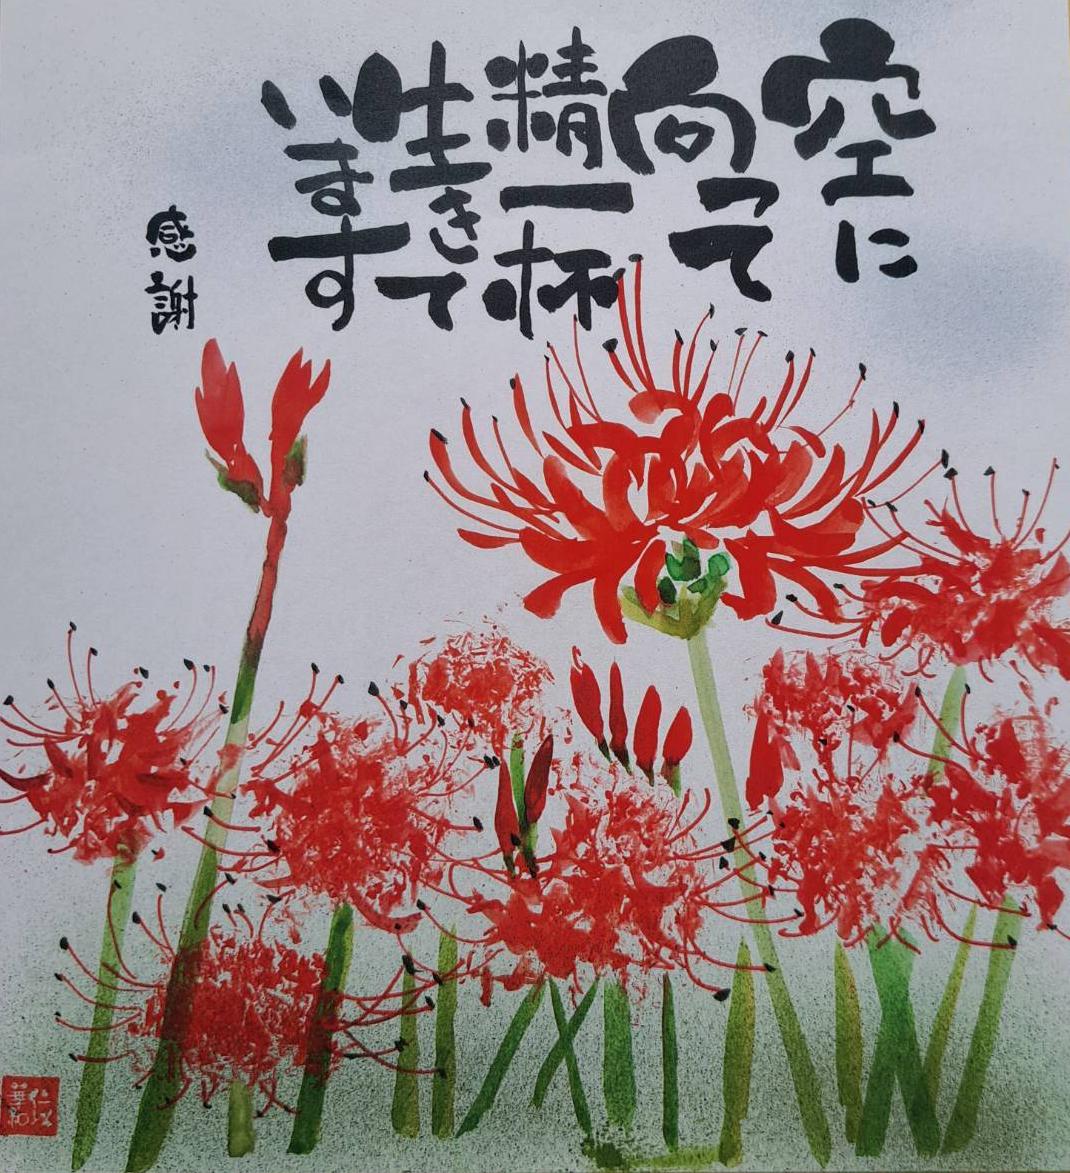 空に
向って
精一杯
生きて
います
感謝